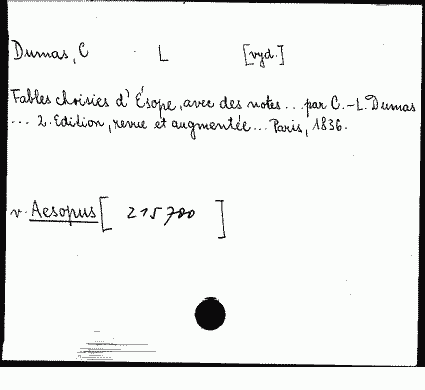 Dumas, C L [vyd.]
Fables choisies d' Ésope, avec des notes... par C.-L. Dumas
... 2. Edition, revue et augmentée... Paris, 1836.
v. Aesopus [ 215700 ]